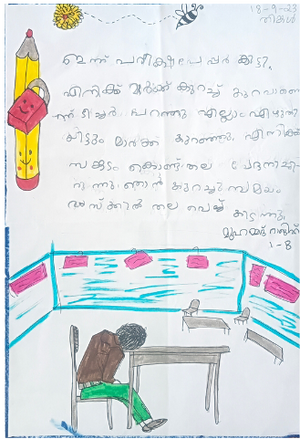 18-9-23
തിങ്കൾ
ഇന്ന് പരീക്ഷപേപ്പർ കിട്ടി.
എനിക്ക് മാർക്ക് കുറച്ച് കുറവാണെ
ന്ന് ടീച്ചർ പറഞ്ഞു എല്ലാം എഴുതി
യിട്ടും മാർക്ക് കുറഞ്ഞു. എനിക്ക്
സങ്കടം കൊണ്ട് തല വേദനിച്ചി
രുന്നു. ഞാൻ കുറച്ചു സമയം
ഡസ്കിൽ തല വെച്ച് കിടന്നു.
മുഹമ്മദ്
1-B